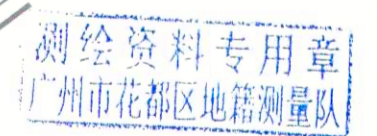 测绘资料专用章
广州市花都区地籍测量队